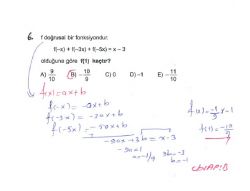 6. f doğrusal bir fonksiyondur.
f(-x) + f(-3x) + f(-5x) = x - 3
olduğuna göre f(1) kaçtır?
A) 9/10 B) -10/9 C) 0 D) -1 E) -11/10
f(x)=ax+b
f(-x) = -ax+b
f(-3x) = -3ax+b
f(-5x) = -5ax+b
-9ax+3b = x-3
-9a=1
a=-1/9
3b=-3
b=-1
f(x)=-1/9x-1
f(1)=-10/9
CEVAP:B